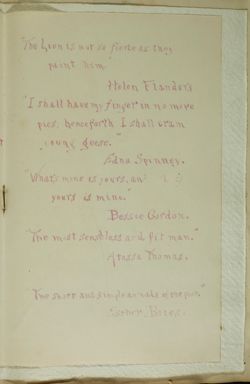 "The Lion is not so fierce as they
paint him."
Helen Flanders
"I shall have my finger in no more
pies, henceforth I shall cram
young geese."
Edna Spinney.
"What's mine is yours, an
yours is mine."
Bessie Gordon.
"The most senseless and fit man."
Atossa Thomas.
"The short and simple annals of the poor."
Esther